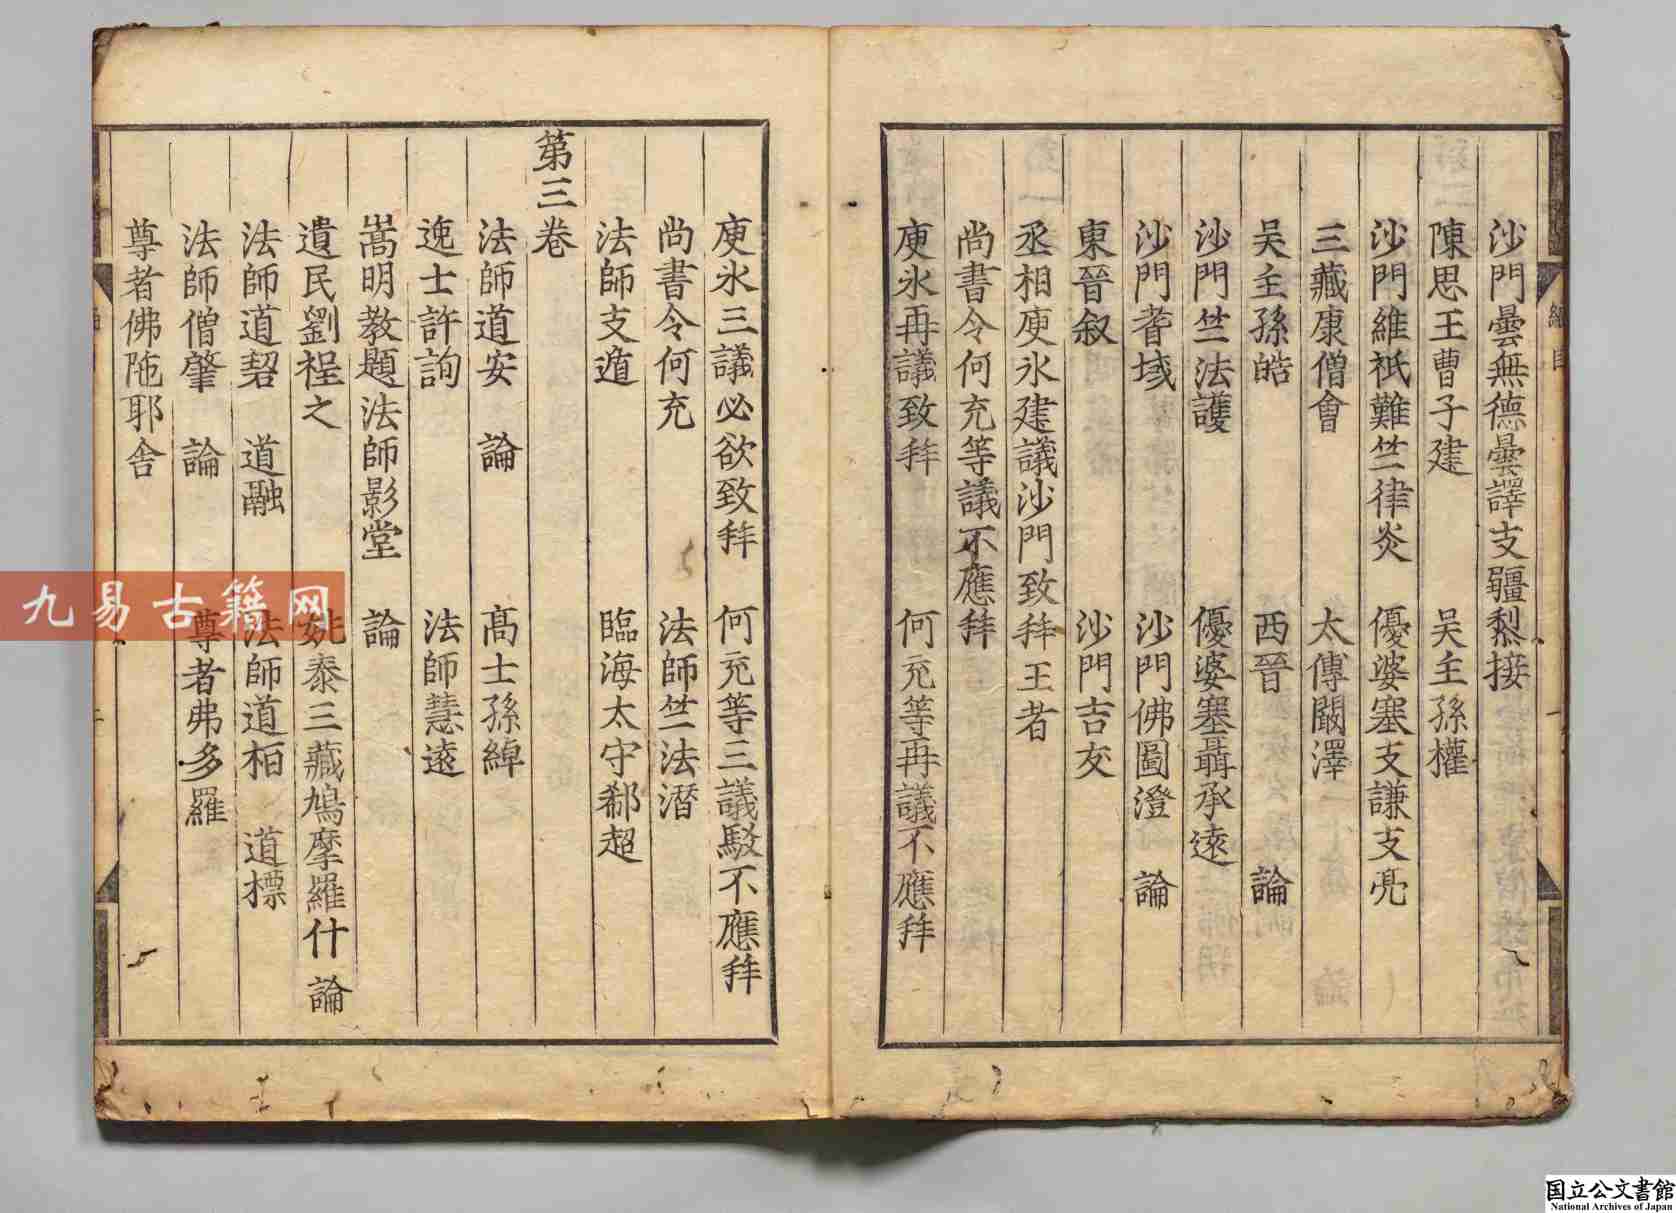 沙門曇無德曇譯支疆梨接
陳思王曹子建　吴主孫權
沙門維祇難竺律炎　優婆塞支謙支亮
三藏康僧會　太傅闞澤
吴主孫皓　西晉　論
沙門竺法護　優婆塞聶承遠
沙門耆域　沙門佛圖澄　論
東晉叙　沙門吉友
丞相庾氷建議沙門致拜王者
尚書令何充等議不應拜
庾氷再議致拜　何充等再議不應拜
總目
庾氷三議必欲致拜　何充等三議駁不應拜
尚書令何充　法師竺法潛
法師支遁　臨海太守郗超
第三卷
法師道安　論　高士孫綽
逸士許詢　法師慧遠
嵩明教題法師影堂　論
遺民劉程之　姚秦三藏鳩摩羅什　論
法師道䂮　道融　法師道栢　道標
法師僧肇　論　尊者弗多羅
尊者佛陁耶舍
九易古籍网
国立公文書館
National Archives of Japan